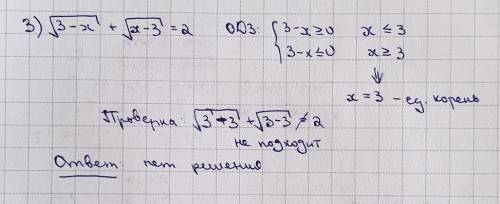 3) √(3-x) + √(x-3) = 2 ОДЗ: { 3-x≥0 x ≤ 3
3-x≤0 x ≥ 3
⇓
x = 3 – ед. корень
Проверка: √(3-3) + √(3-3) ≠ 2
не подходит
Ответ: нет решения